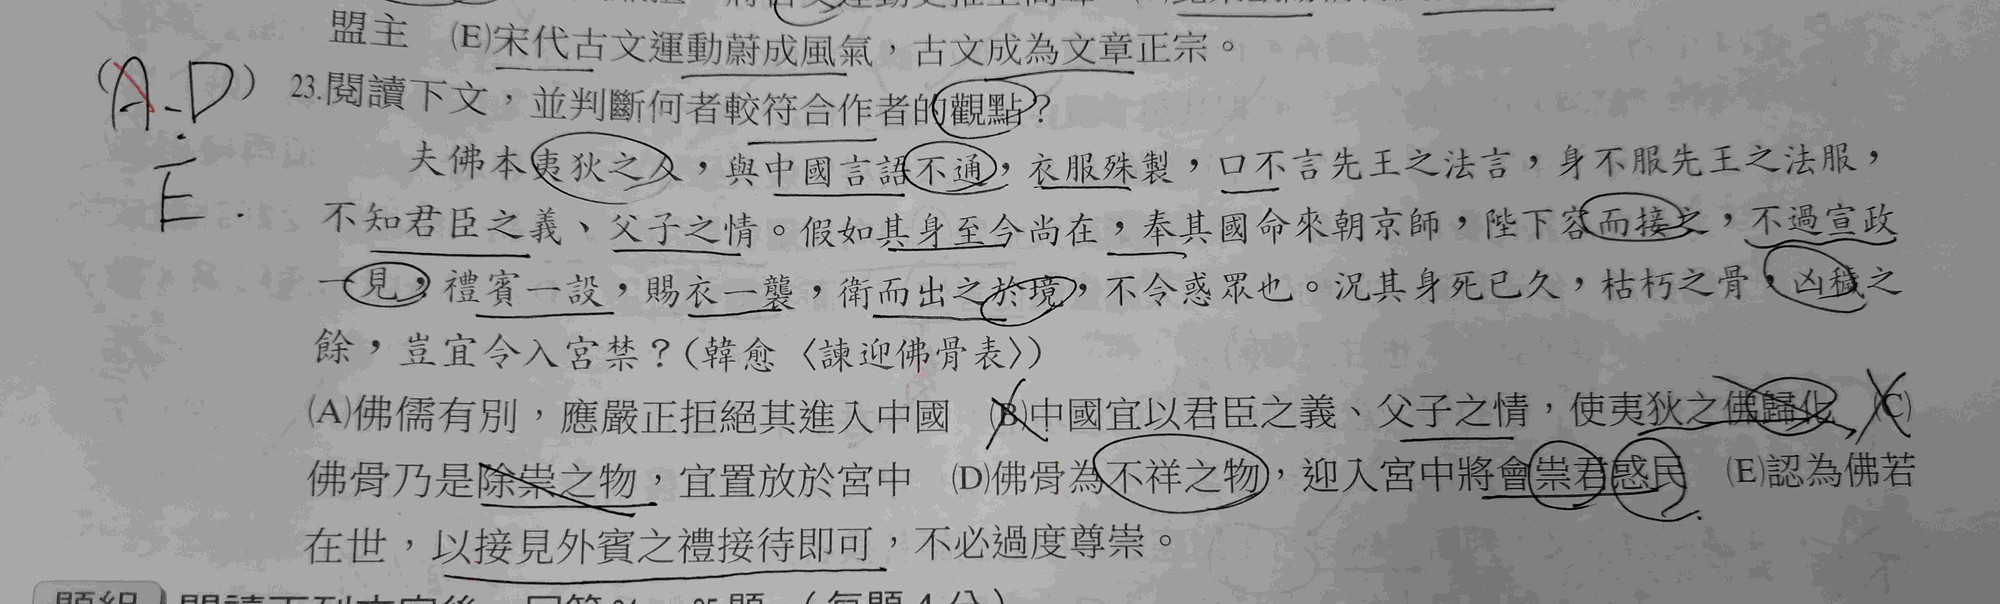 盟主　(E)宋代古文運動蔚成風氣，古文成為文章正宗。
(A.D) 23.閱讀下文，並判斷何者較符合作者的觀點？
E.
夫佛本夷狄之人，與中國言語不通，衣服殊製，口不言先王之法言，身不服先王之法服，
不知君臣之義、父子之情。假如其身至今尚在，奉其國命來朝京師，陛下容而接之，不過宣政
一見，禮賓一設，賜衣一襲，衛而出之於境，不令惑眾也。況其身死已久，枯朽之骨，凶穢之
餘，豈宜令入宮禁？(韓愈〈諫迎佛骨表〉)
(A)佛儒有別，應嚴正拒絕其進入中國　(B)中國宜以君臣之義、父子之情，使夷狄之佛歸化　(C)
佛骨乃是除祟之物，宜置放於宮中　(D)佛骨為不祥之物，迎入宮中將會祟君惑民　(E)認為佛若
在世，以接見外賓之禮接待即可，不必過度尊崇。